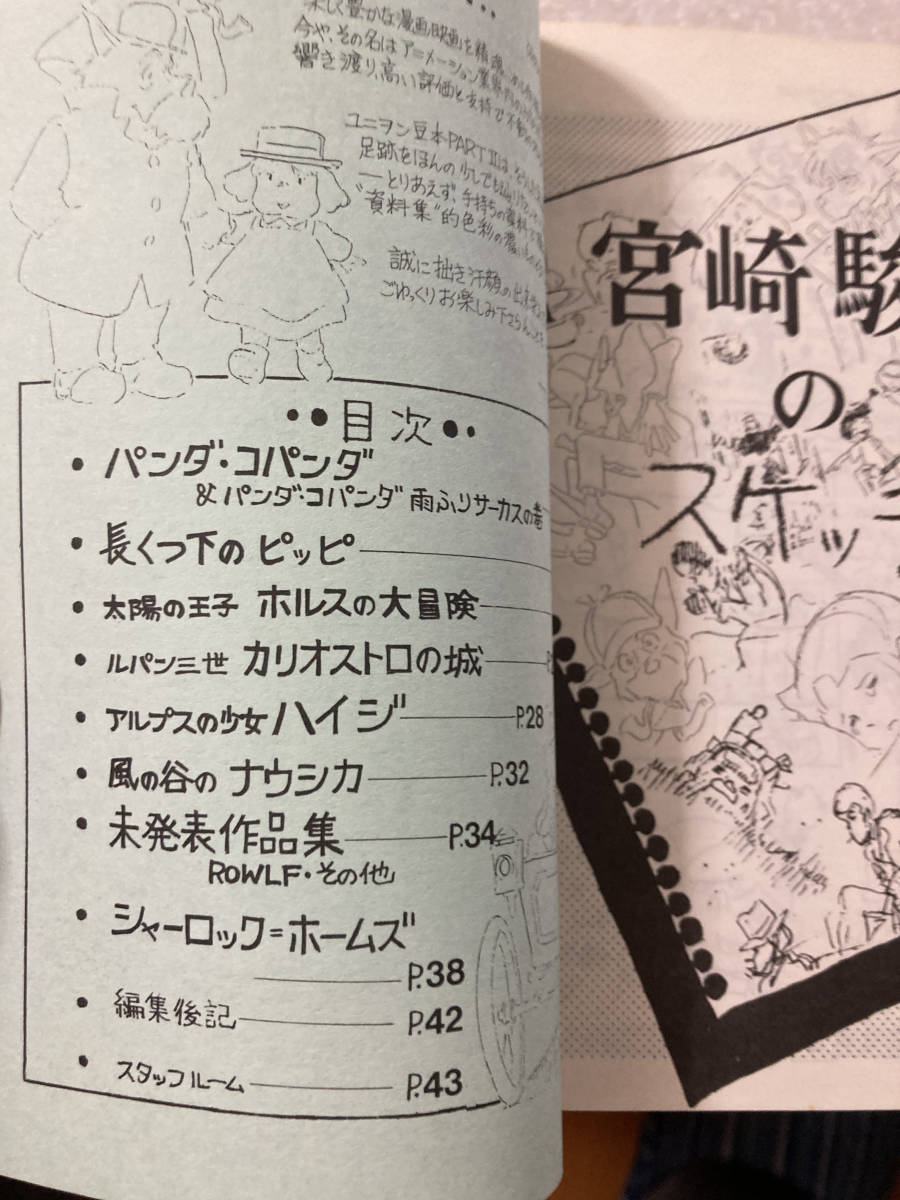 豊かな漫画映画を
今や、その名はアニメーション業界内の
響き渡り、高い評価と支持で不動の
ユニヲン豆本PARTIIは、
足跡をほんの少しでも
―とりあえず、手持ちの資料で
"資料集"的色彩の濃い
誠に拙き汗顔の出来
ごゆっくりお楽しみ下さらんことを
••目次••
• パンダ・コパンダ
&パンダ・コパンダ 雨ふりサーカスの巻
• 長くつ下の ピッピ
• 太陽の王子 ホルスの大冒険
• ルパン三世 カリオストロの城
• アルプスの少女 ハイジ P.28
• 風の谷の ナウシカ P.32
• 未発表作品集 P.34
ROWLF・その他
• シャーロック=ホームズ
P.38
• 編集後記 P.42
• スタッフルーム P.43
宮崎駿
の
スケッチ